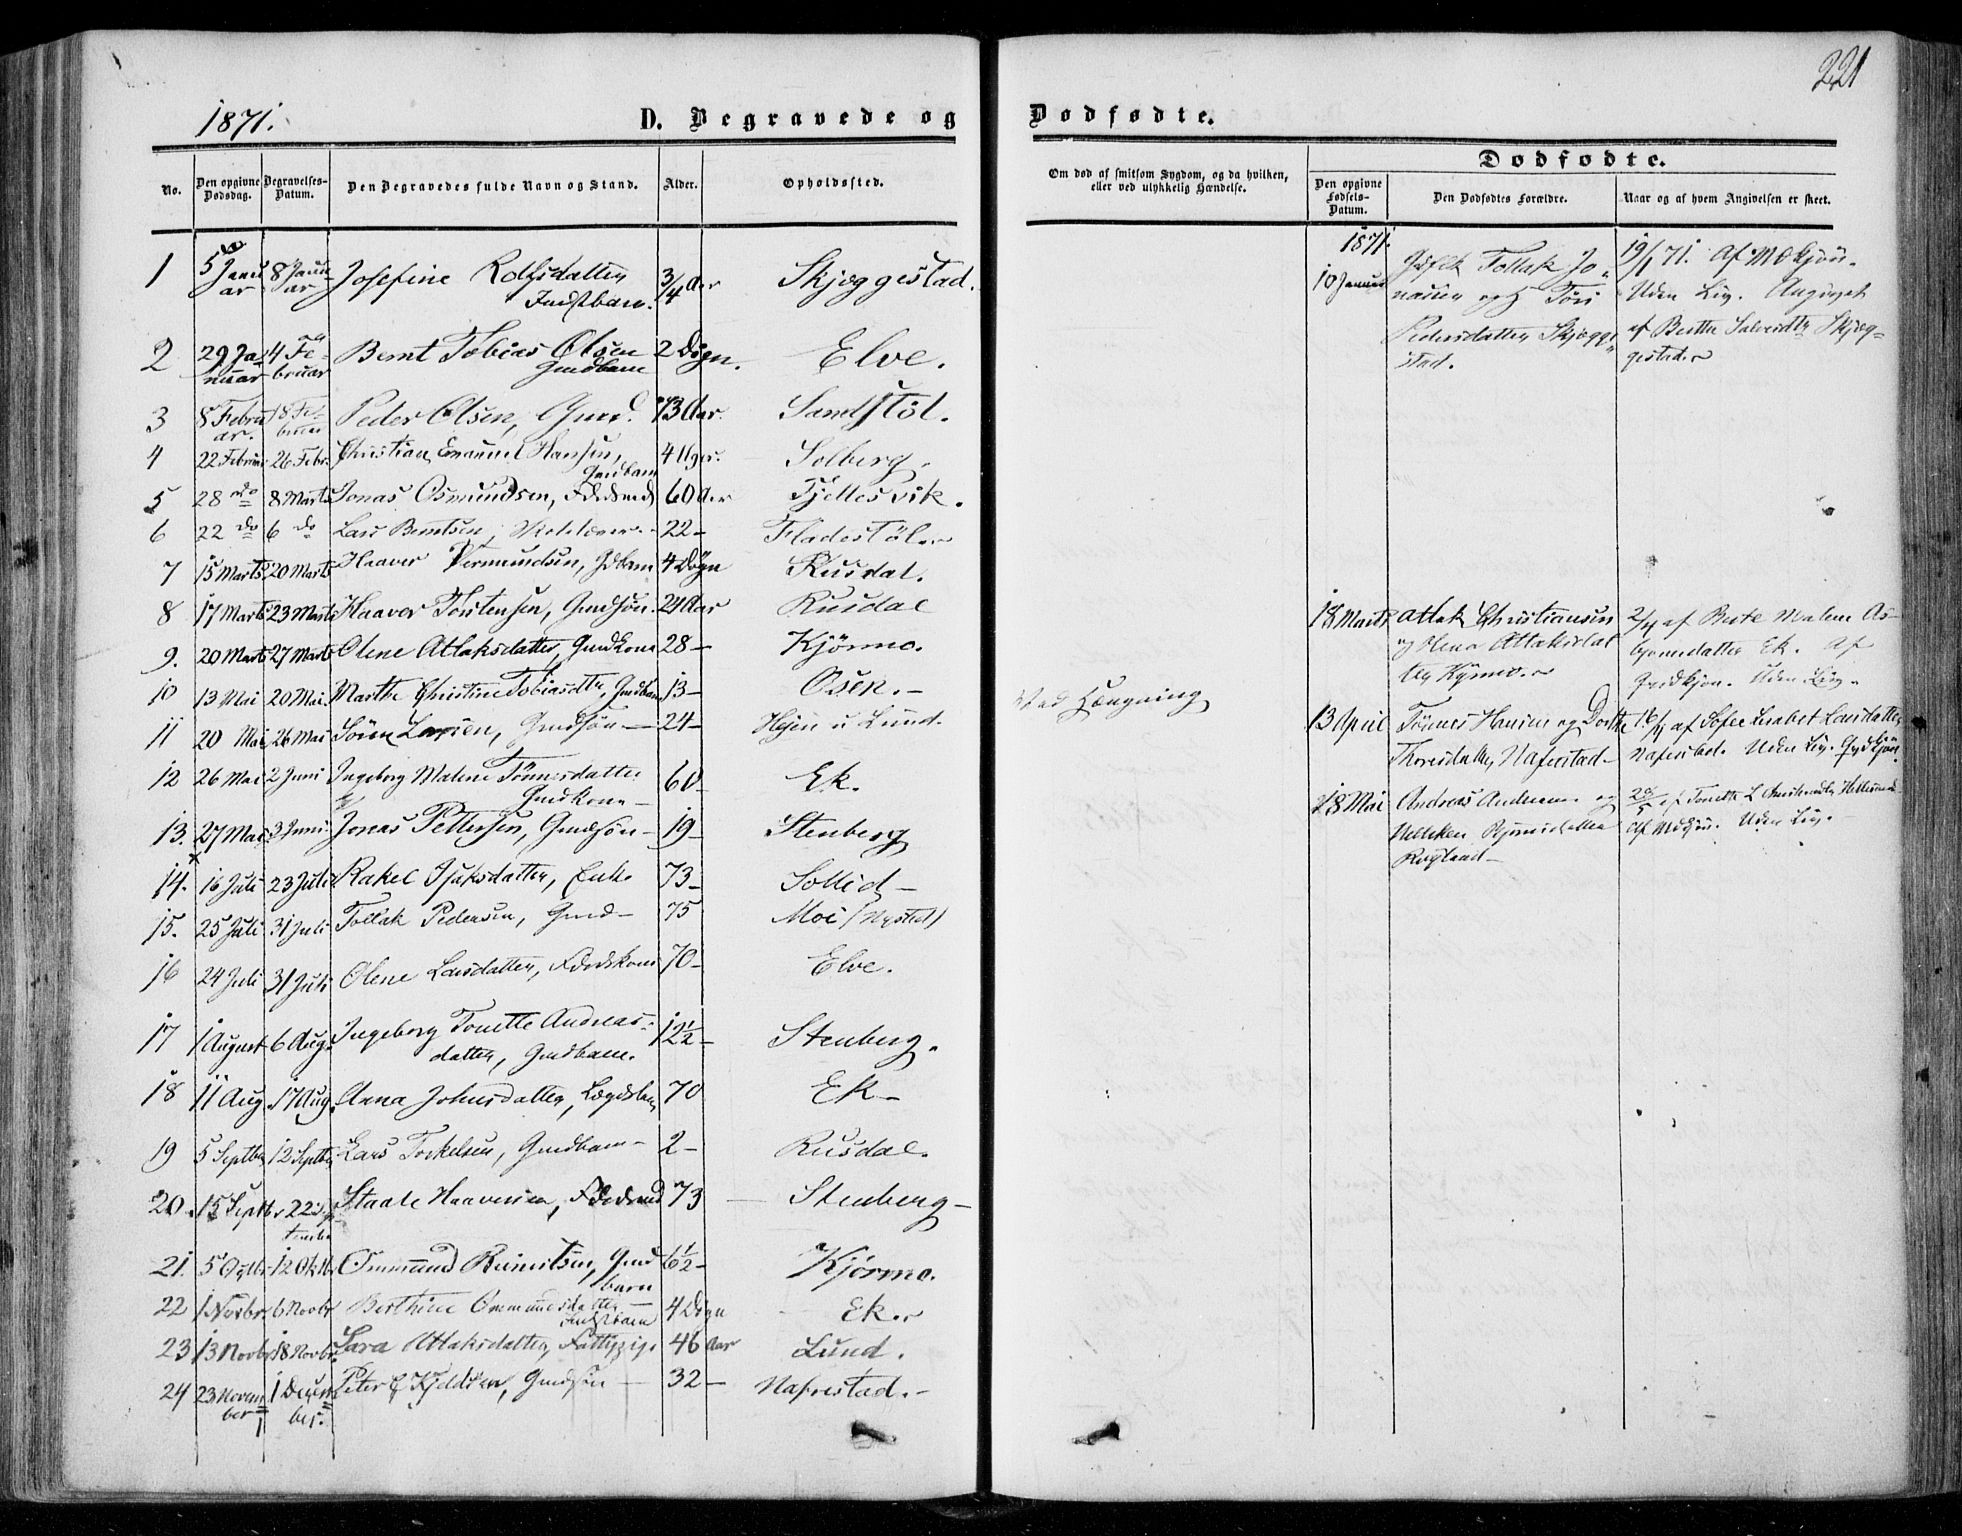 221
1871.
D. Begravede og Dødfødte.
Dødfødte.
No.
Den opgivne Dødsdag.
Begravelses-Datum.
Den Begravedes fulde Navn og Stand.
Alder.
Opholdssted.
Om død af smitsom Sygdom, og da hvilken,
eller ved ulykkelig Hændelse.
Den opgivne Fødsels-Datum.
Den Dødfødtes Forældre.
Naar og af hvem Angivelsen er skeet.
1 5 Januar 8 Januar Josefine 3/4 Aar Skjæggestad.
Indstbarn.
2 29 Januar 4 Februar Bernt Tobias Olsen 2 Døgn. Elve.
Gmdbarn
3 8 Februar. 18 Februar Peder Olsen, Gmd. 73 Aar. Sandstöl.
4 22 Februar 26 Febr. Christian Emanuel Hansen, 4 Uger. Solberg.
Gmdbarn
5 28 do 8 Marts Jonas Osmundsen, Føderaad 60 Aar Fjellesvik.
6 22 do 6 do Lars Berntsen, 22 - Fladestöl
7 15 Marts 20 Marts Haaver Vermundsen, Gdbarn 4 Døgn Rusdal.
8 17 Marts 23 Marts Haaver Torstensen, Gmdsøn. 24 Aar Rusdal
9. 20 Marts 27 Marts Olene Atlaksdatter, Gmdkone 28 - Kjörmo.
10 13 Mai 20 Mai. Marthe Christine Tobiasdtr, Gmdbarn 13 - Osen. - Ved Hængning
11 20 Mai 26 Mai Sören Larsen, Gmdsøn - 24 - Hejen u Lund.
12 26 Mai 2 Juni Ingeborg Malene Tönnesdatter 60 Ek.
Gmdkone -
13. 27 Mai 3 Juni Jonas Pettersen, Gmdsøn - 19 - Stenberg
14. 16 Juli 23 Juli Rakel Isaksdatter, Enke 73 - Sollid -
15. 25 Juli 31 Juli Tollak Pedersen, Gmd - 75 Moi (Nysted)
16 24 Juli 31 Juli Olene Larsdatter, Føderaadskone 70 - Elve.
17 1 August 6 Aug. Ingeborg Tonette Andreas- 12 1/2 - Stenberg.
datter, Gmdbarn.
18 11 Aug 17 Aug. Anna Johnsdatter, Lægdslem 70 Ek -
19 5 Septbr 12 Septbr Lars Torkelsen, Gmdbarn - 2 - Rusdal.
20. 15 Septbr 22 September Staale Haaversen, Føderaad 73 - Stenberg -
21. 5 Octbr 12 Oktbr Ommund Reinertsen, Gmd 6 1/2 - Kjörmo.
barn
22 1 Novbr 6 Novbr Berthine Ommundsdatter - 4 Døgn Ek.
Indstbarn
23 13 Novbr 18 Novbr. Sara Atlaksdatter, Fattiglem 46 Aar Lund.
24 23 November 1 December. Peter Kjeldsen, Gmdsøn - 32 - Nafrestad. -
1871.
10 Januar
Tollak Jo-
nassen og Töri
Pedersdatter Skjægge-
stad.
19/1 71. Af
Uden Liv. Angivet
af Berthe Salvesdtr Skjæg-
gestad.
18 Marts
Atlak Christiansen
og Atlaksdat-
ter Kjörmo.
2/4 af Berte Malene As-
bjornsdatter Ek. Af
Gjordkjon. Uden Liv.
13 April
Tönnes Hansen og Dorthe
Thoresdatter, Nafrestad -
16/4 af Sofie Lisabet Larsdatter,
Nafrestad. Uden Liv.
18 Mai
Andreas Andersen og
Rejersdatter
Rugland -
28/5 af Tonette
Uden Liv. -